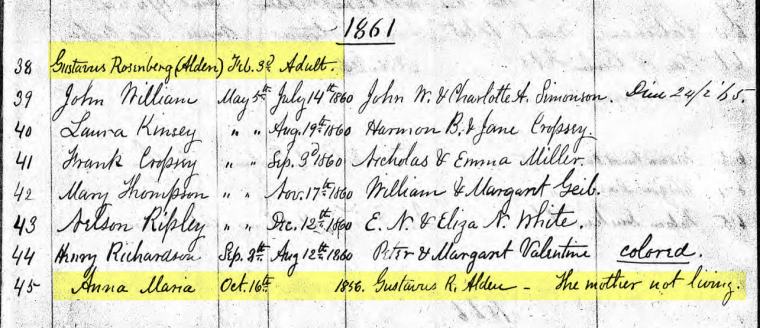 1861
38 Gustavus Rosenberg (Alden) Feb. 3d Adult.
39 John William May 5th July 14th 1860 John W. & Charlotte A. Simonson. Died 24/2/65.
40 Laura Kinsey " " Aug. 19th 1860 Harmon B. & Jane Cropsey.
41 Frank Cropsey " " Sep. 3d 1860 Nicholas & Emma Miller.
42 Mary Thompson " " Nov. 17th 1860 William & Margaret Geib.
43 Nelson Ripley " " Dec. 12th 1860 E. N. & Eliza N. White.
44 Henry Richardson Sep. Aug 12th 1860 Peter & Margaret Valentine colored.
45 Anna Maria Oct. 16th 1856. Gustavus R. Alden – The mother not living.